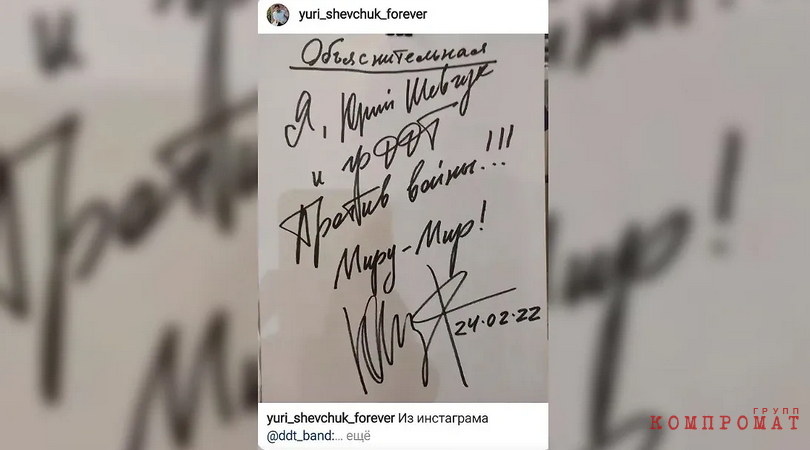 yuri_shevchuk_forever
Объяснительная
Я, Юрий Шевчук
и гр ДДТ
Против войны...!!!
Миру-Мир!
24.02.22
yuri_shevchuk_forever Из инстаграма
@ddt_band:... ещё
ГРУПП
КОМПРОМАТ